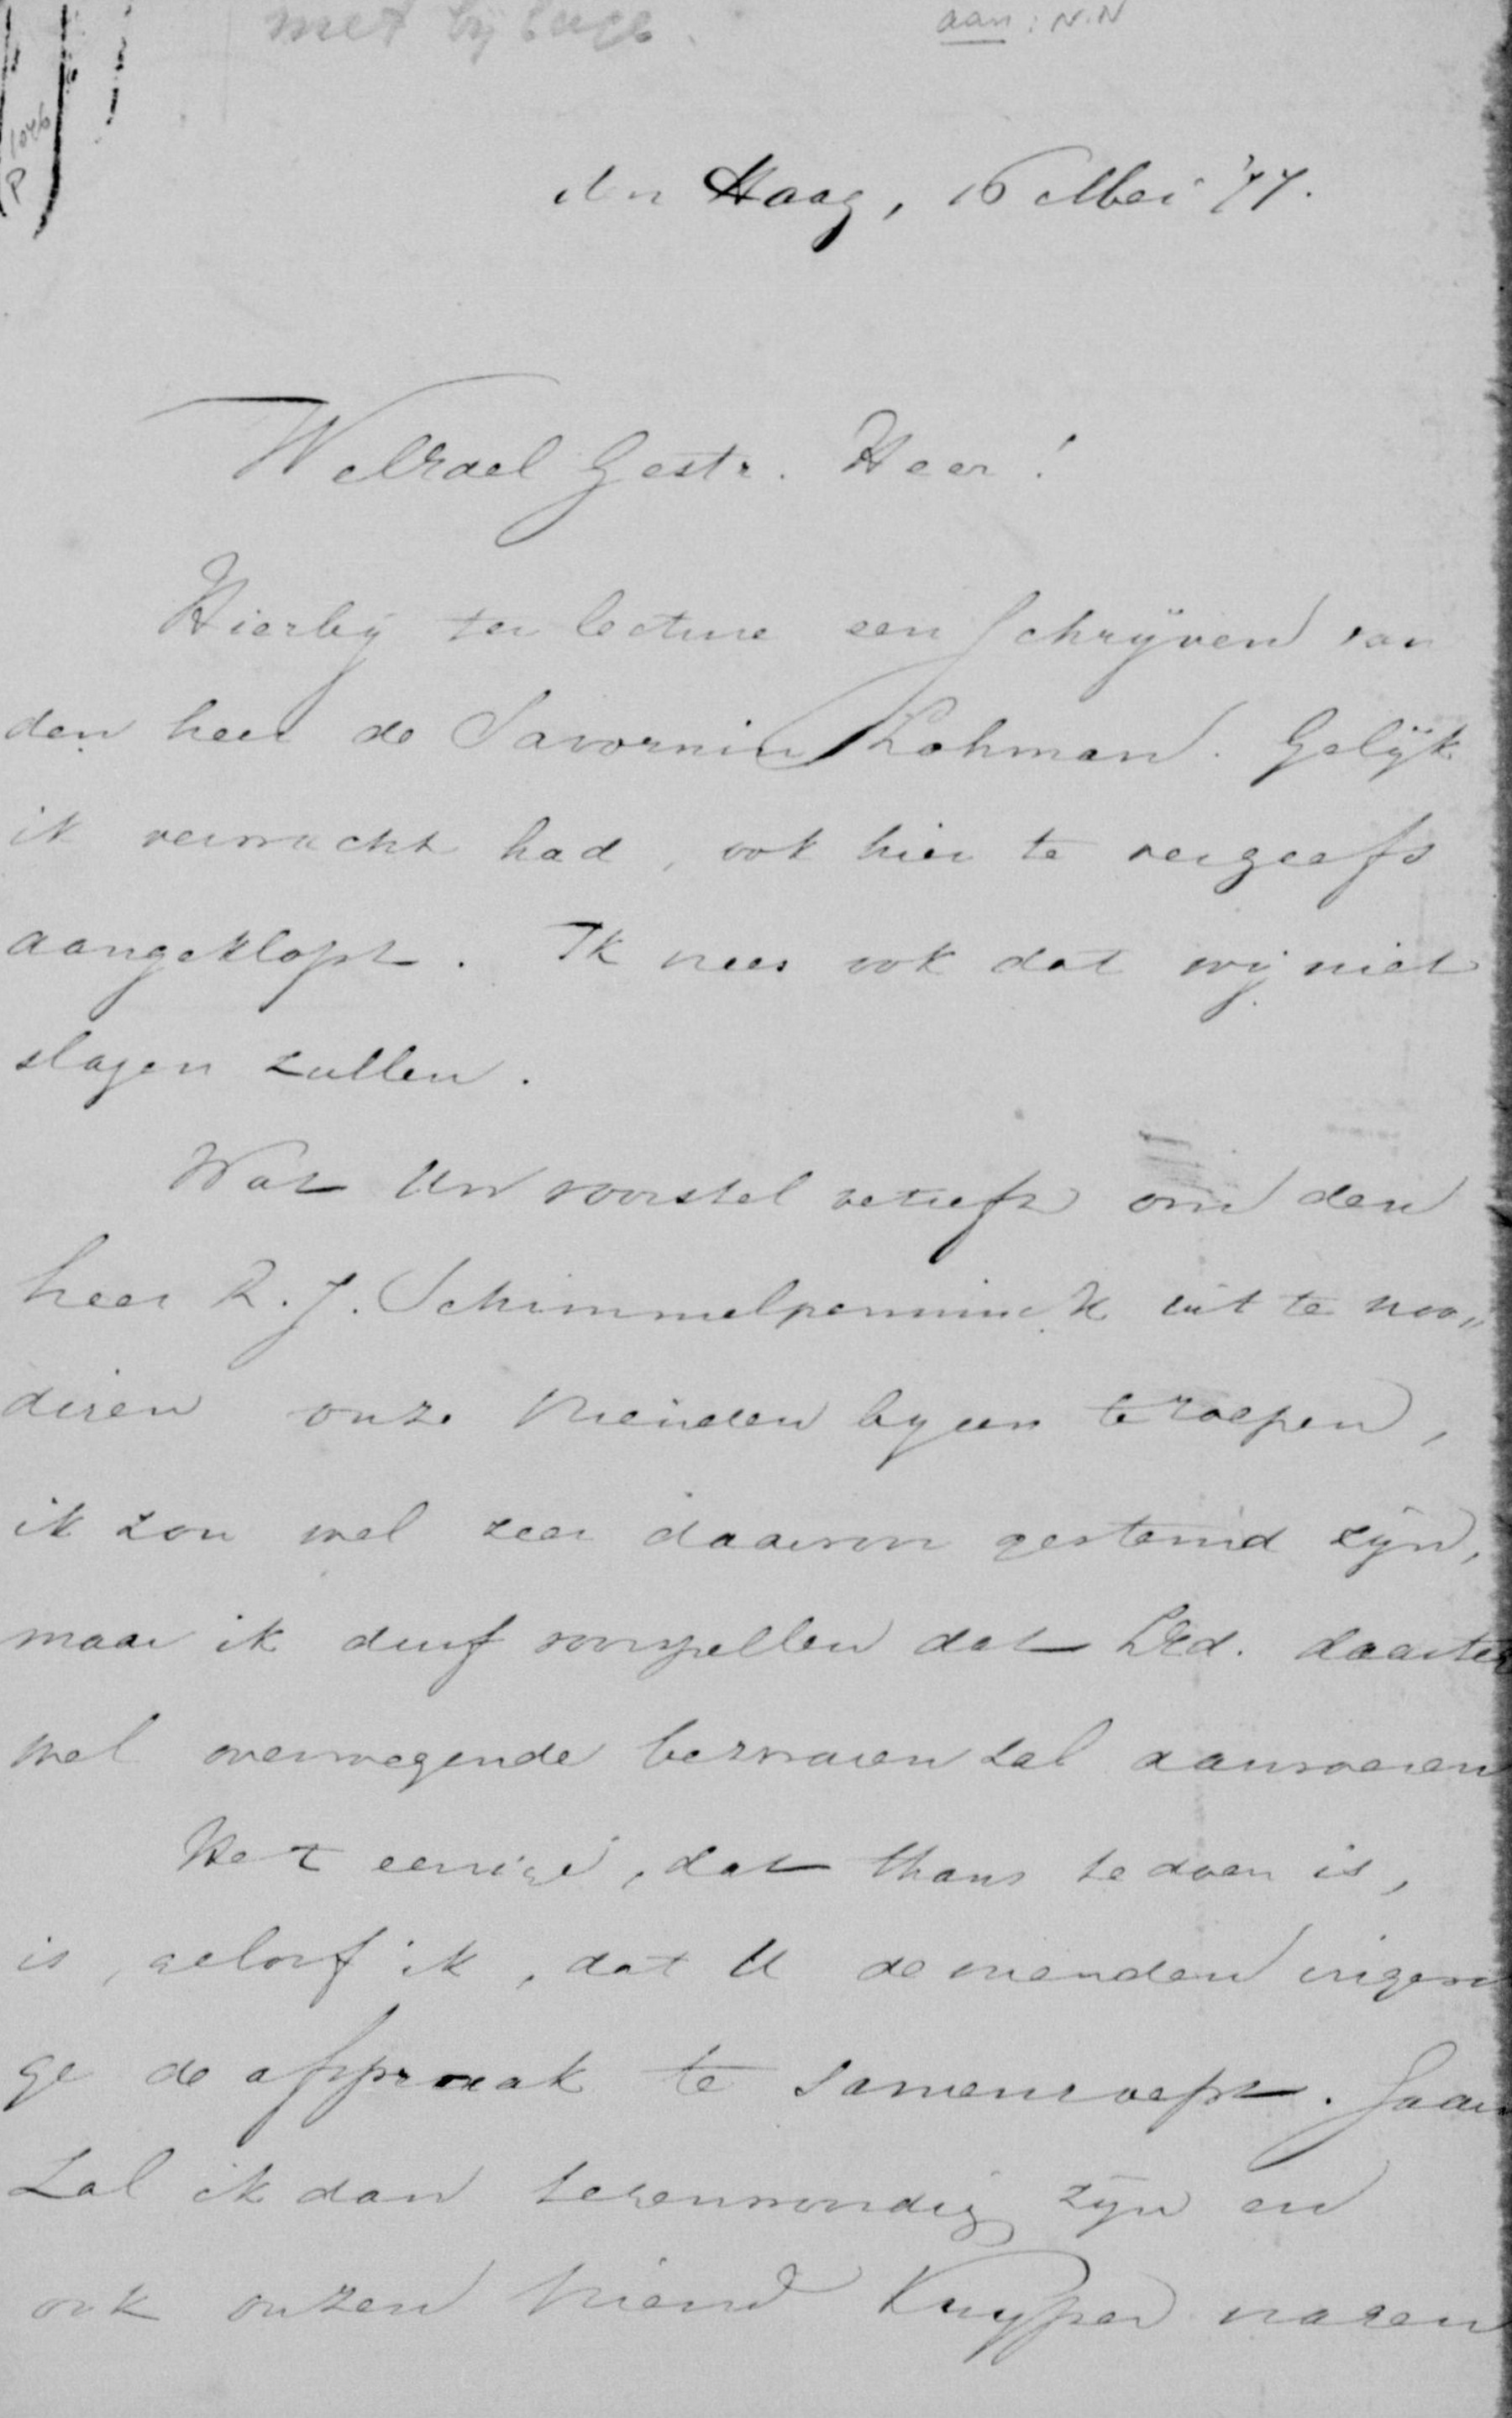 met bijlage.
aan: N.N
P 1046
den Haag, 16 Mei '77.
WelEdel Gestr. Heer!
Hierbij ter lecture een schrijven van
den heer de Savornin Lohman. Gelijk
ik verwacht had, ook hier te vergeefs
aangeklopt. Ik vrees ook dat wij niet
slagen zullen.
Wat Uw voorstel betreft om den
heer R. J. Schimmelpenninck uit te noo„
digen onze vrienden bijeen te roepen,
ik zou wel zeer daarvoor gestemd zijn,
maar ik durf voorspellen dat ZEd. daartegen
wel overwegende bezwaren zal aanvoeren
Het eenige, dat thans te doen is,
is, geloof ik, dat U de vrienden ingevol
ge de afspraak te samenroept. Gaarne
zal ik dan tegenwoordig zijn en
ook onzen vriend Kuyper vragen